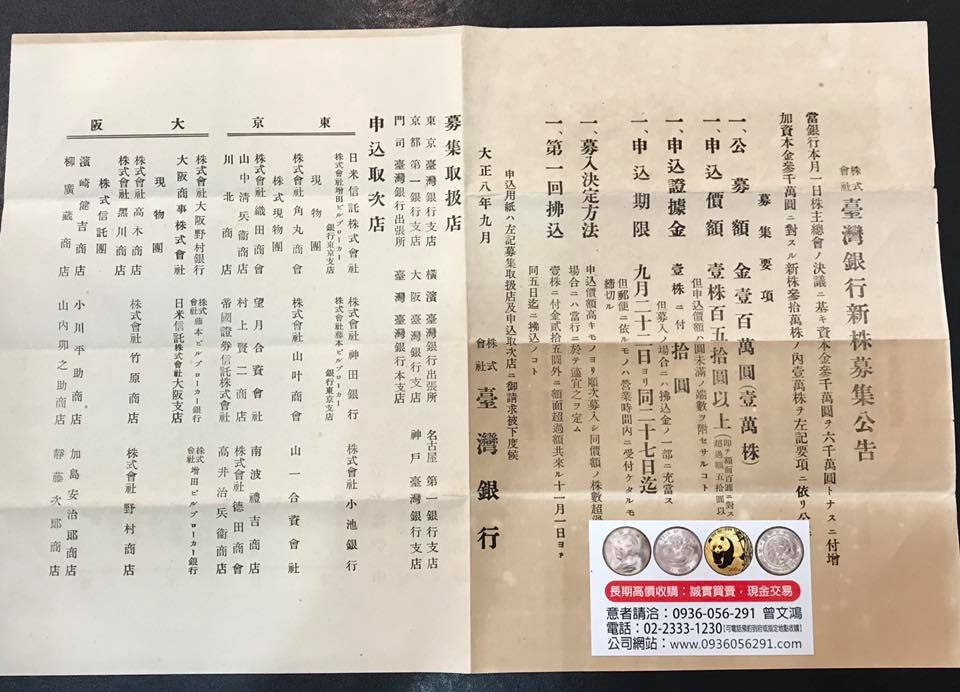 株式會社 臺灣銀行新株募集公告
當銀行本月一日株主總會ノ決議ニ基キ資本金參千萬圓ヲ六千萬圓トナスニ付增
加資本金參千萬圓ニ對スル新株參拾萬株ノ內壹萬株ヲ左記要項ニ依リ公
募集要項
一、公募額 金壹百萬圓(壹萬株)
一、申込價額 壹株百五拾圓以上(卽チ額面百圓ニ對スル超過額五拾圓以
但申込價額ハ圓未滿ノ端數ヲ附セサルコト
一、申込證據金 壹株ニ付拾圓
但募入ノ場合ニハ拂込金ノ一部ニ充當ス
一、申込期限 九月二十二日ヨリ同二十七日迄
但郵便ニ依ルモノハ營業時間內ニ受付ケタルモ
締切ル
一、募入決定方法 申込價額高キモノヨリ順次募入シ同價額ノ株數超過
場合ニハ當行ニ於テ適宜之ヲ定ム
一、第一回拂込 壹株ニ付金貳拾五圓外ニ額面超過額共來ル十一月一日ヨリ
同五日迄ニ拂込ノコト
申込用紙ハ左記募集取扱店及申込取次店ニ御請求被下度候
大正八年九月
株式會社 臺灣銀行
募集取扱店
東京 臺灣銀行支店 橫濱 臺灣銀行出張所 名古屋 第一銀行支店
京都 第一銀行支店 大阪 臺灣銀行支店 神戶 臺灣銀行支店
門司 臺灣銀行出張所 臺灣 臺灣銀行本支店
申込取次店
東京
日米信託株式會社 株式會社神田銀行 株式會社小池銀行
株式會社增田ビルブローカー銀行東京支店 株式會社藤本ビルブローカー銀行東京支店
現物團
株式會社角丸商會 株式會社山叶商會 山一合資會社
株式現物團
株式會社織田商會 望月合資會社 南波禮吉商店
山中淸兵衞商店 村上賢二商店 株式會社德田商會
川北商店 帝國證券信託株式會社 高井治兵衞商店
大阪
株式會社大阪野村銀行 株式會社藤本ビルブローカー銀行 株式會社增田ビルブローカー銀行
大阪商事株式會社 日米信託株式會社大阪支店
現物團
株式會社高木商店 株式會社竹原商店 株式會社野村商店
株式會社黑川商店
株式信託團
濱崎健吉商店 小川平助商店 加島安治郎商店
柳廣藏商店 山內卯之助商店 靜藤次郎商店
長期高價收購：誠實買賣，現金交易
意者請洽：0936-056-291 曾文鴻
電話：02-2333-1230[可電話預約到府或指定地點收購]
公司網站：www.0936056291.com